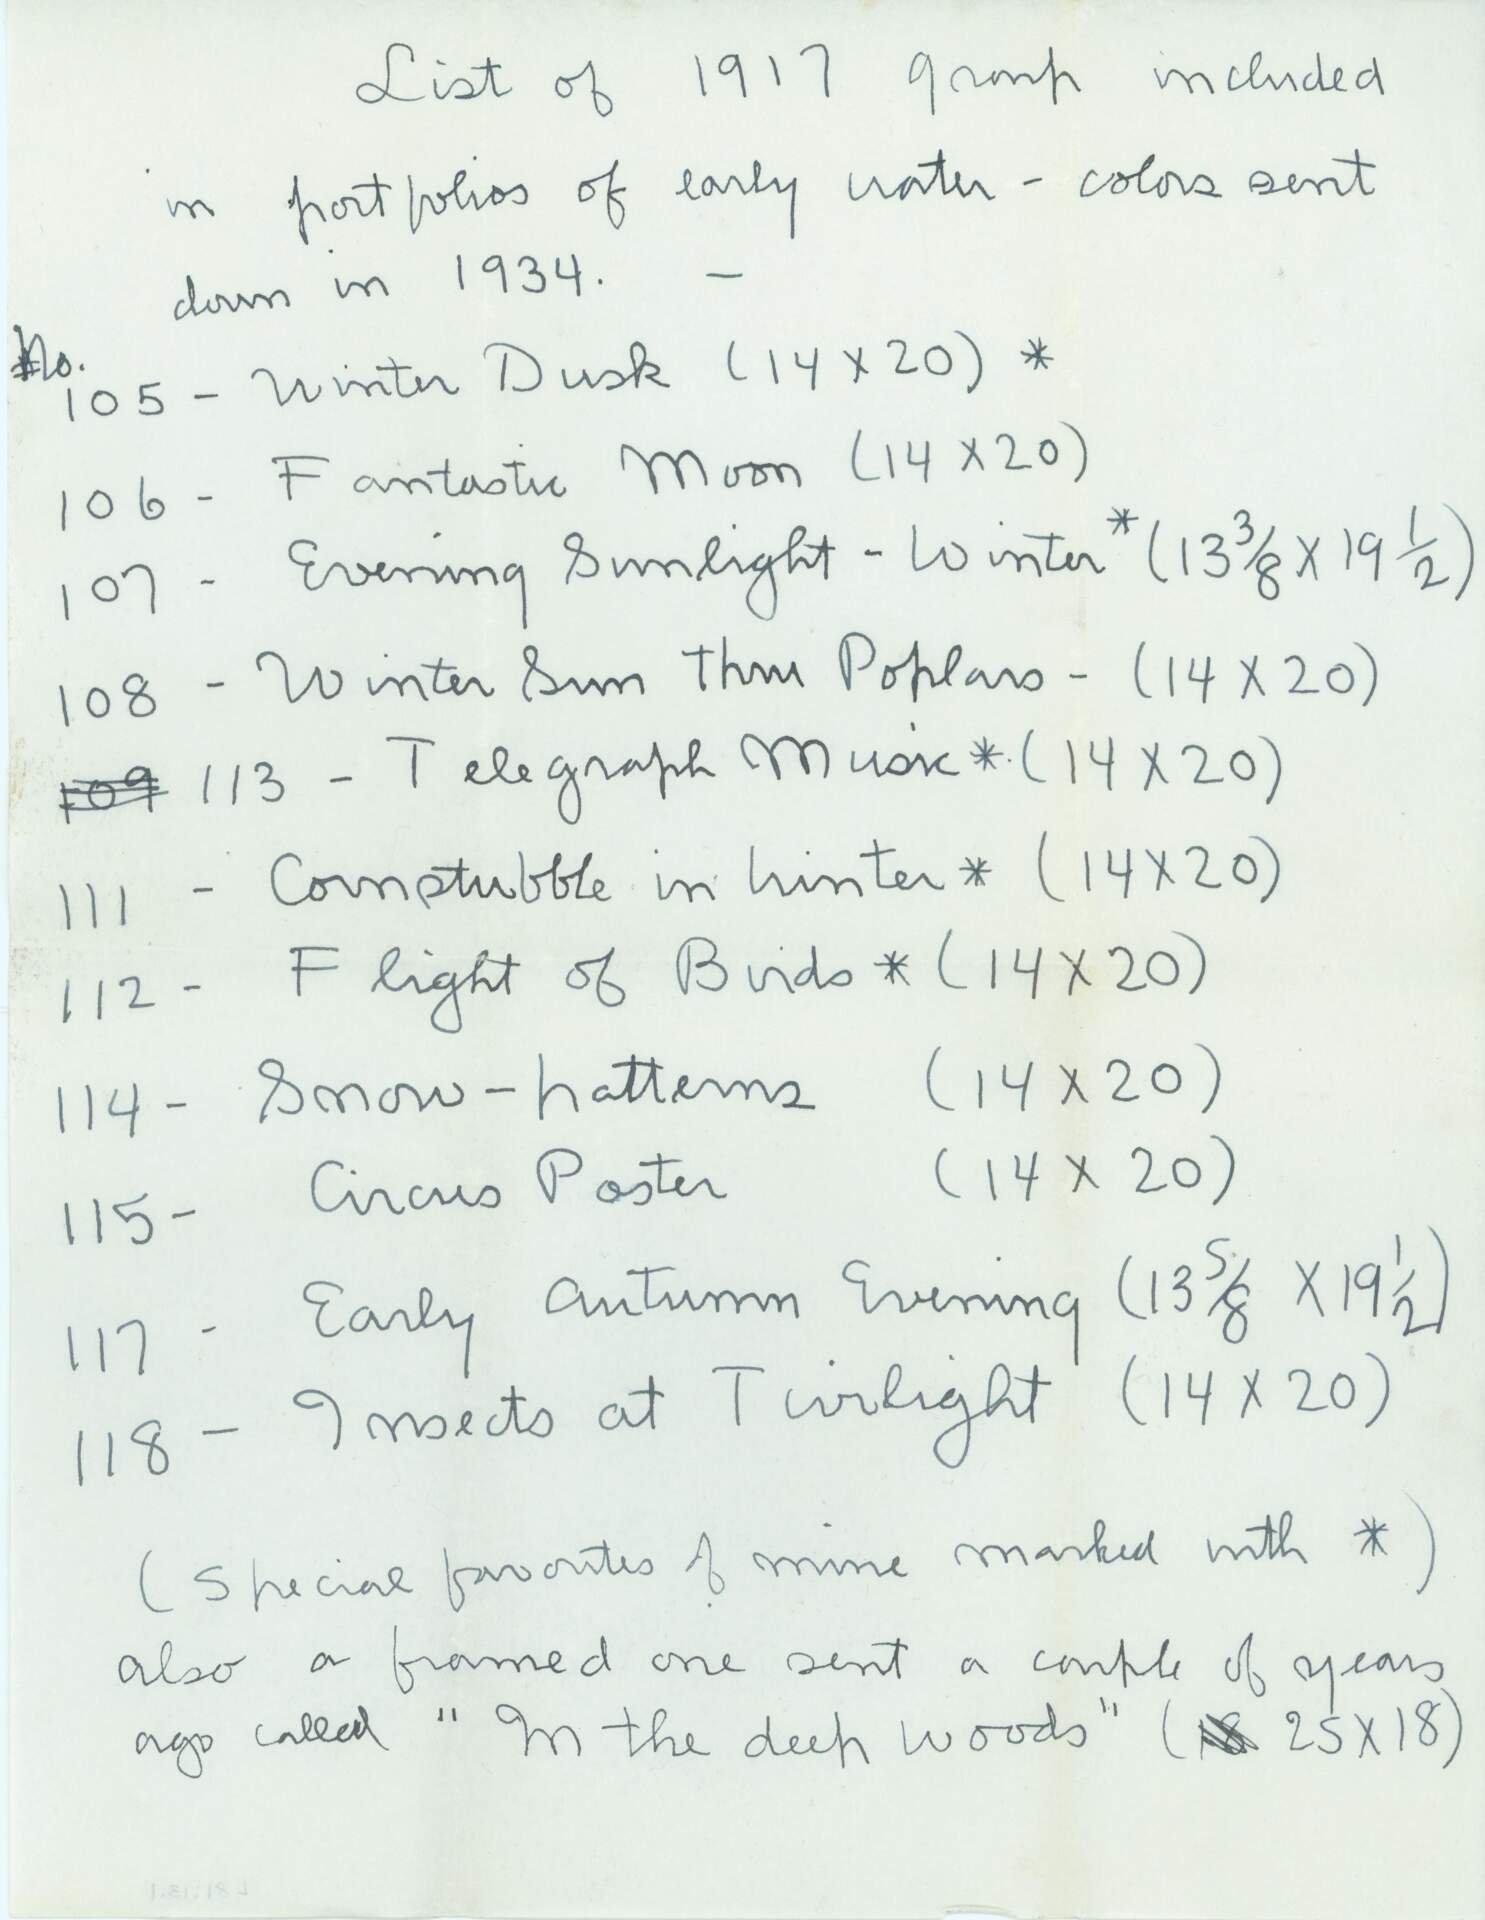 List of 1917 group included
in portfolios of early water-colors sent
down in 1934. -
No.
105 - Winter Dusk (14 X 20) *
106 - Fantastic Moon (14 X 20)
107 - Evening Sunlight - Winter * (13 3/8 X 19 1/2)
108 - Winter Sun Thru Poplars - (14 X 20)
109 113 - Telegraph Music * (14 X 20)
111 - Cornstubble in Winter * (14 X 20)
112 - Flight of Birds * (14 X 20)
114 - Snow-patterns (14 X 20)
115 - Circus Poster (14 X 20)
117 - Early Autumn Evening (13 5/8 X 19 1/2)
118 - Insects at Twilight (14 X 20)
(Special favorites of mine marked with *)
also a framed one sent a couple of years
ago called "In the deep woods" (18 25 X 18)